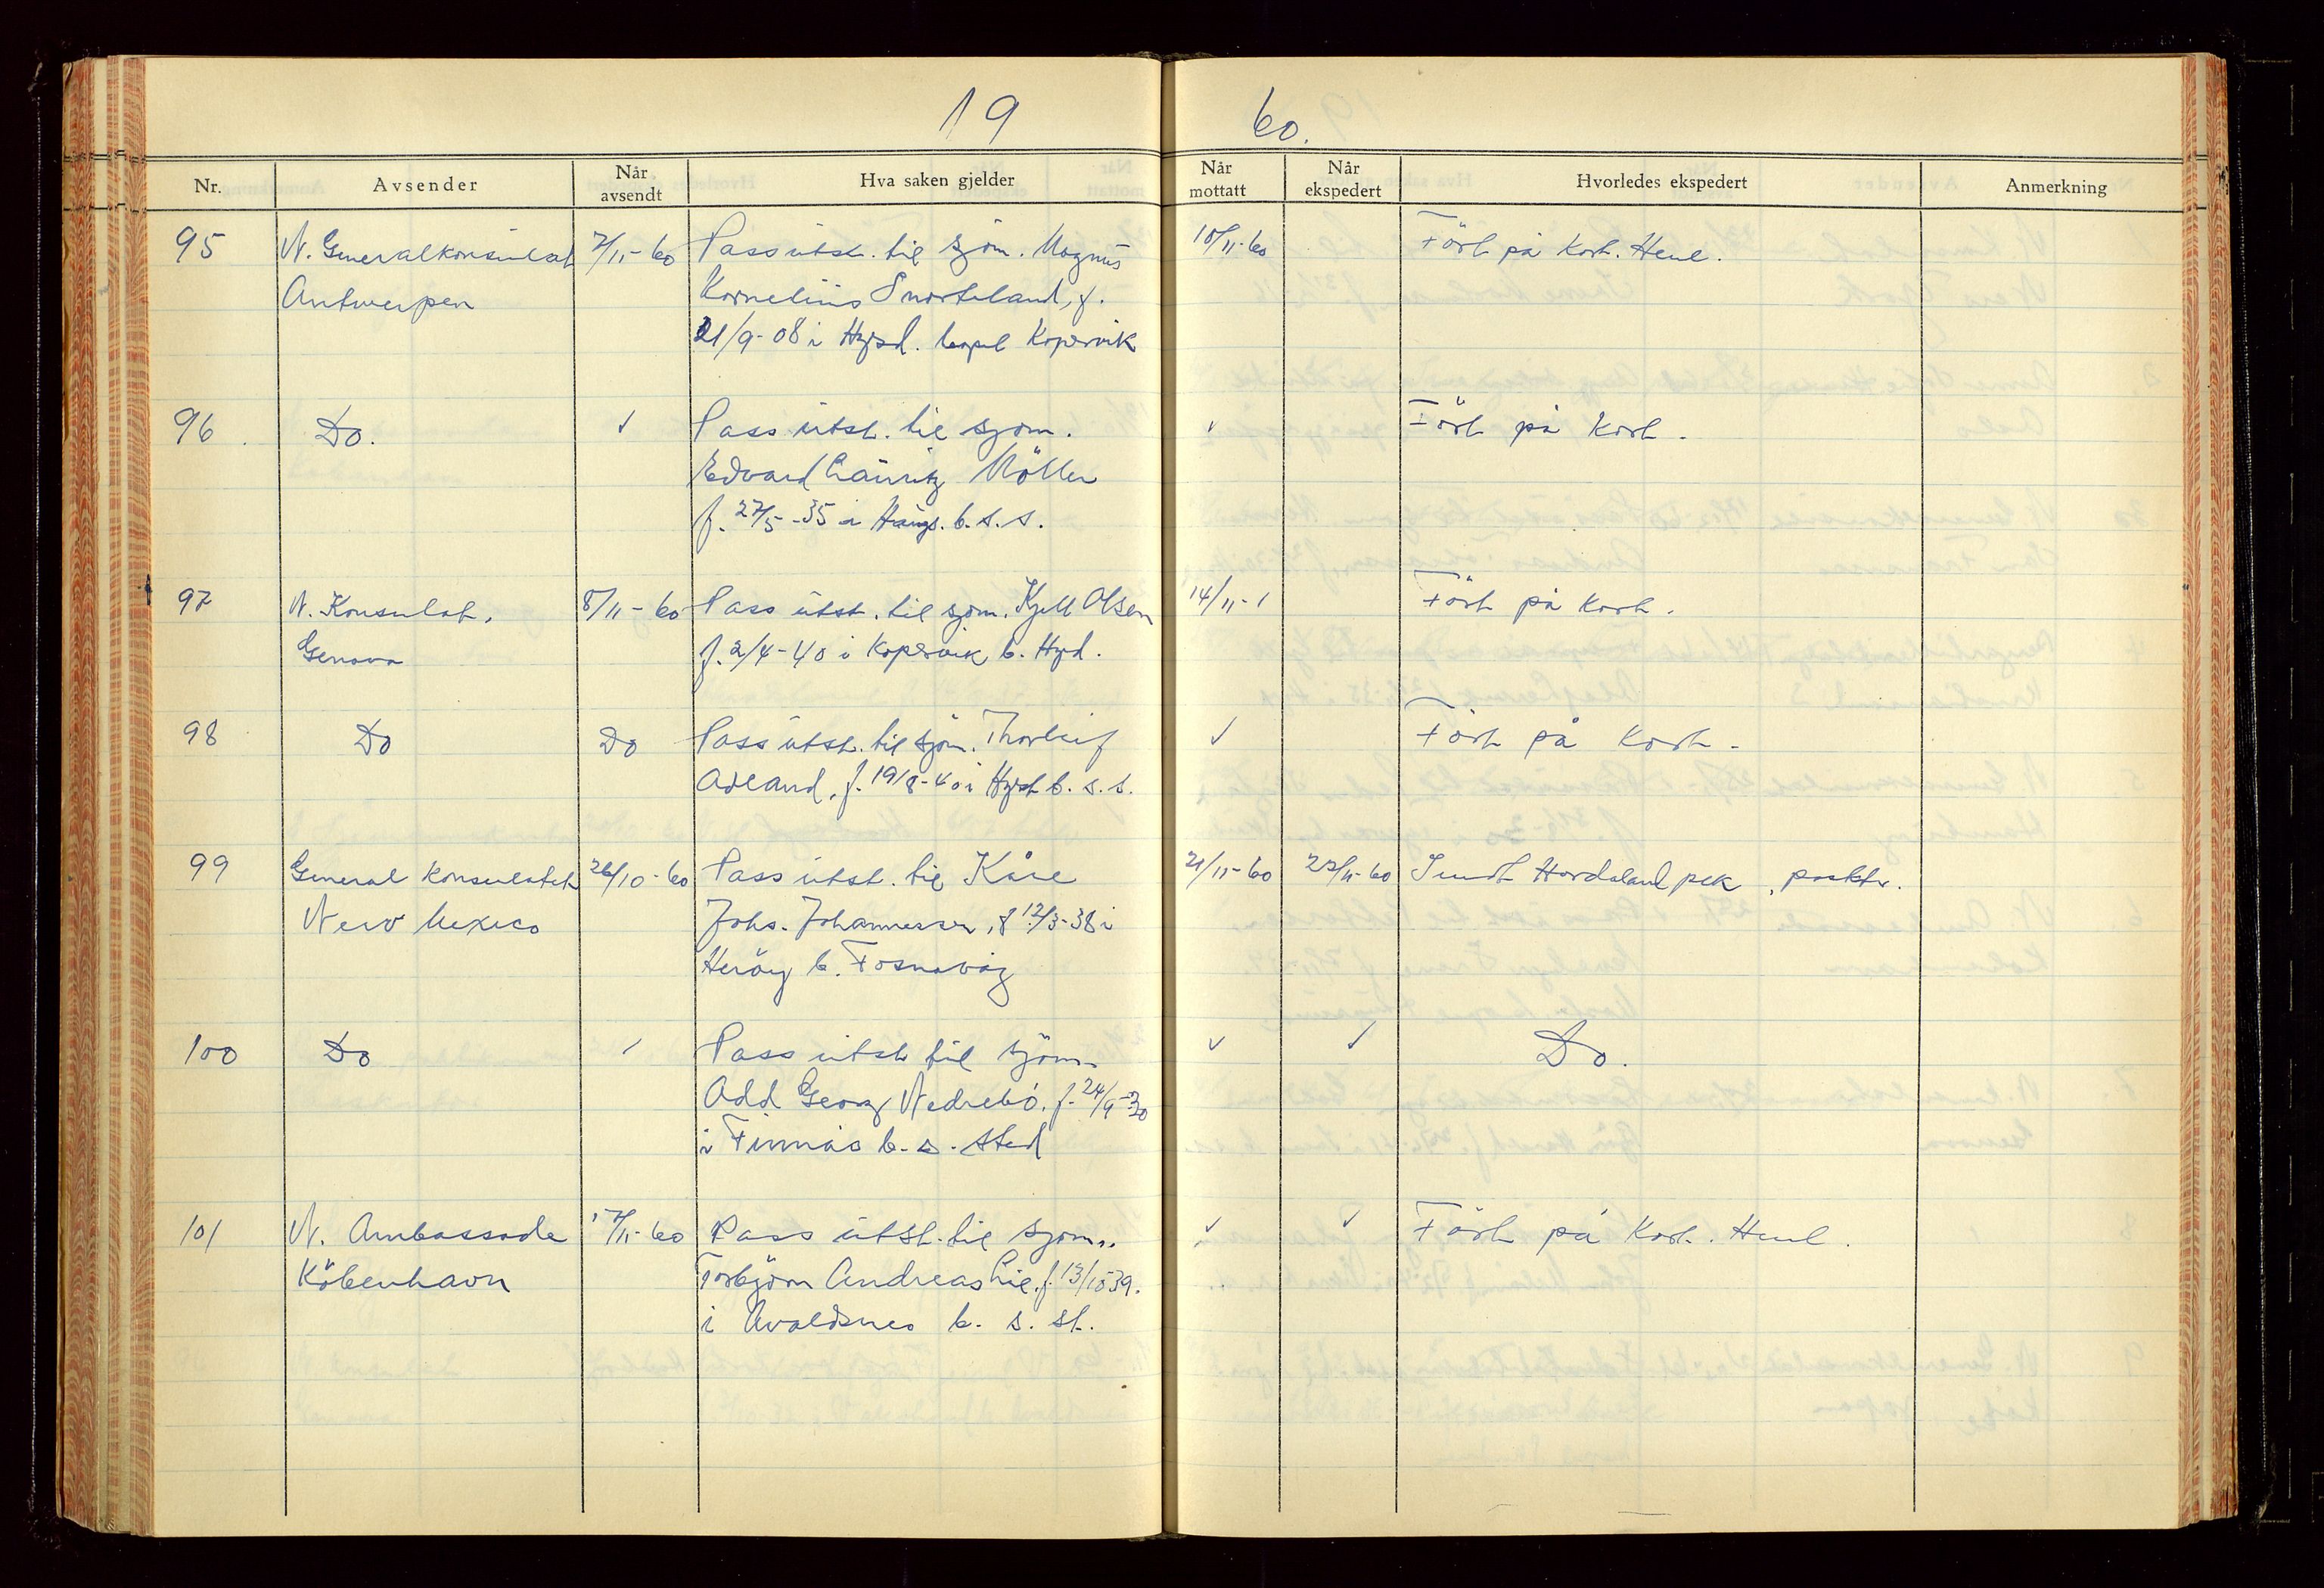 19 60.
Nr. Avsender Når avsendt Hva saken gjelder Når mottatt Når ekspedert Hvorledes ekspedert Anmerkning
95 N. Generalkonsulat 7/11-60 Pass utst. til sjöm. Magnus 10/11-60 Fört på kort. Henl.
Antwerpen Kornelius Snorteland, f.
21/9-08 i Hgsd. bopel Kopervik
96. Do. ✓ Pass utst. til sjöm. ✓ Fört på kort.
Edvard Lauritz Möller
f. 27/5-35 i Haugs. b. s. s.
97 N. Konsulat, 8/11-60 Pass utst. til sjöm. Kjell Olsen 14/11-1 Fört på kort.
Genova f. 2/4-40 i Kopervik b. Hgd.
98 Do Do Pass utst. til sjöm. Thorleif ✓ Fört på kort.
Adland, f. 19/8-40 i Hgsd b. s. s.
99 General konsulatet 26/10-60 Pass utst. til Kåre 21/11-60 22/11-60 Sendt Hordaland pkk, postkv.
New Mexico Johs. Johannessen, f 12/3-38 i
Heröy b. Fosnavåg
100 Do ✓ Pass utst til sjöm. ✓ ✓ Do.
Odd Georg Nedrebö. f. 24/9-30
i Finnås b. s. sted
101 N. Ambassade 17/11-60 Pass utst. til sjöm. ✓ ✓ Fört på kort. Henl.
Köbenhavn Torbjörn Andreas Lie. f. 13/10 39.
i Avaldsnes b. s. st.